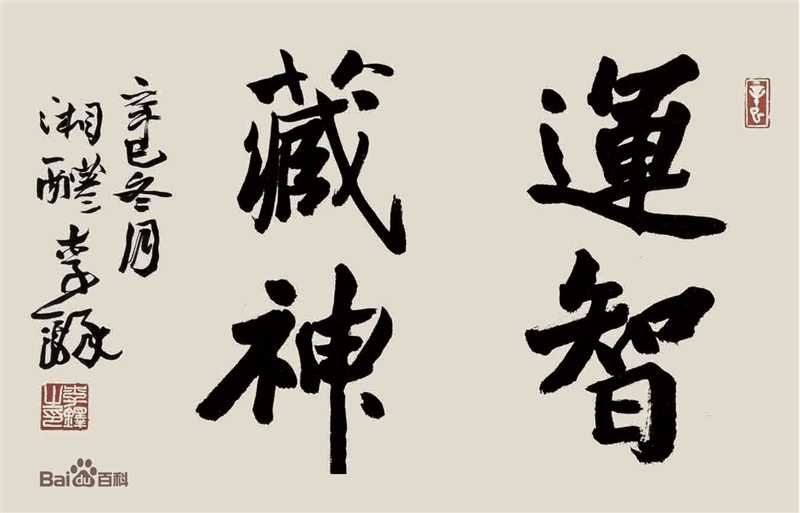 運智
藏神
辛巳冬月
湘醴李鐸
李鐸之印
Bai du 百科